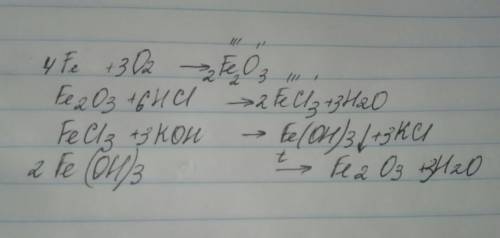 4Fe + 3O2 → 2Fe2O3
Fe2O3 + 6HCl → 2FeCl3 + 3H2O
FeCl3 + 3KOH → Fe(OH)3↓ + 3KCl
2Fe(OH)3 t→ Fe2O3 + 3H2O